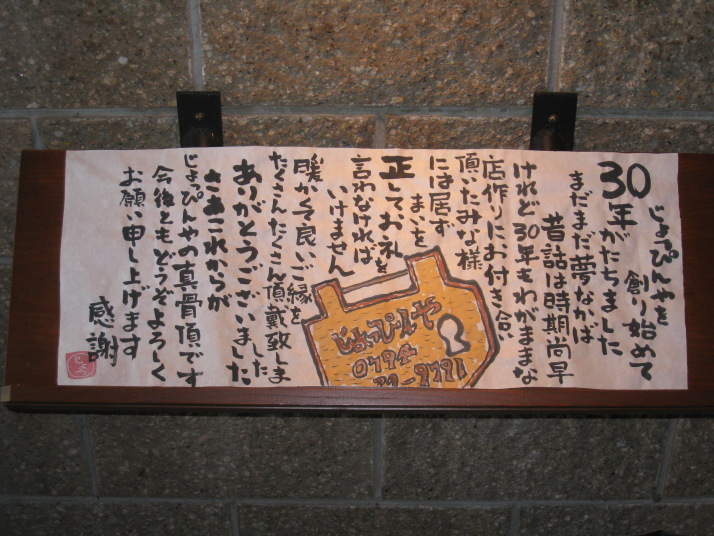 じょっぴんやを
創り始めて
30年がたちました
まだまだ夢なかば
昔話は時期尚早
けれど30年もわがままな
店作りにお付き合い
頂いたみな様
には居ず
まいを
正してお礼を
言わなければ
いけません
暖かくて良いご縁を
たくさんたくさん頂戴致しま
した
ありがとうございました
さあこれからが
じょっぴんやの真骨頂です
今後ともどうぞよろしく
お願い申し上げます
感謝
じょっぴんや